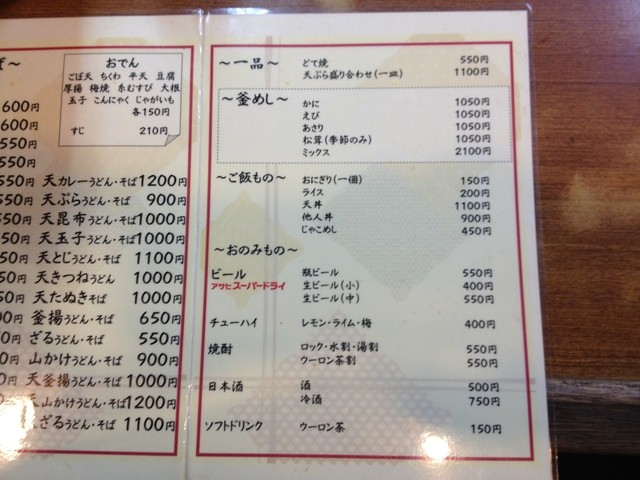 おでん
ごぼ天 ちくわ 平天 豆腐
厚揚 梅焼 糸むすび 大根
玉子 こんにゃく じゃがいも
各150円
すじ 210円
600円
600円
550円
550円
550円 天カレーうどん・そば 1200円
天ぷらうどん・そば 900円
天昆布うどん・そば 1000円
天玉子うどん・そば 1000円
天とじうどん・そば 1100円
天きつねうどん 1000円
天たぬきそば 1000円
釜揚うどん・そば 650円
ざるうどん・そば 550円
山かけうどん・そば 900円
天釜揚うどん・そば 1000円
天山かけうどん・そば 1200円
ざるうどん・そば 1100円
～一品～ どて焼 550円
天ぷら盛り合わせ(一皿) 1100円
～釜めし～ かに 1050円
えび 1050円
あさり 1050円
松茸(季節のみ) 1050円
ミックス 2100円
～ご飯もの～ おにぎり(一個) 150円
ライス 200円
天丼 1100円
他人丼 900円
じゃこめし 450円
～おのみもの～
ビール 瓶ビール 550円
アサヒスーパードライ 生ビール(小) 400円
生ビール(中) 550円
チューハイ レモン・ライム・梅 400円
焼酎 ロック・水割・湯割 550円
ウーロン茶割 550円
日本酒 酒 500円
冷酒 750円
ソフトドリンク ウーロン茶 150円